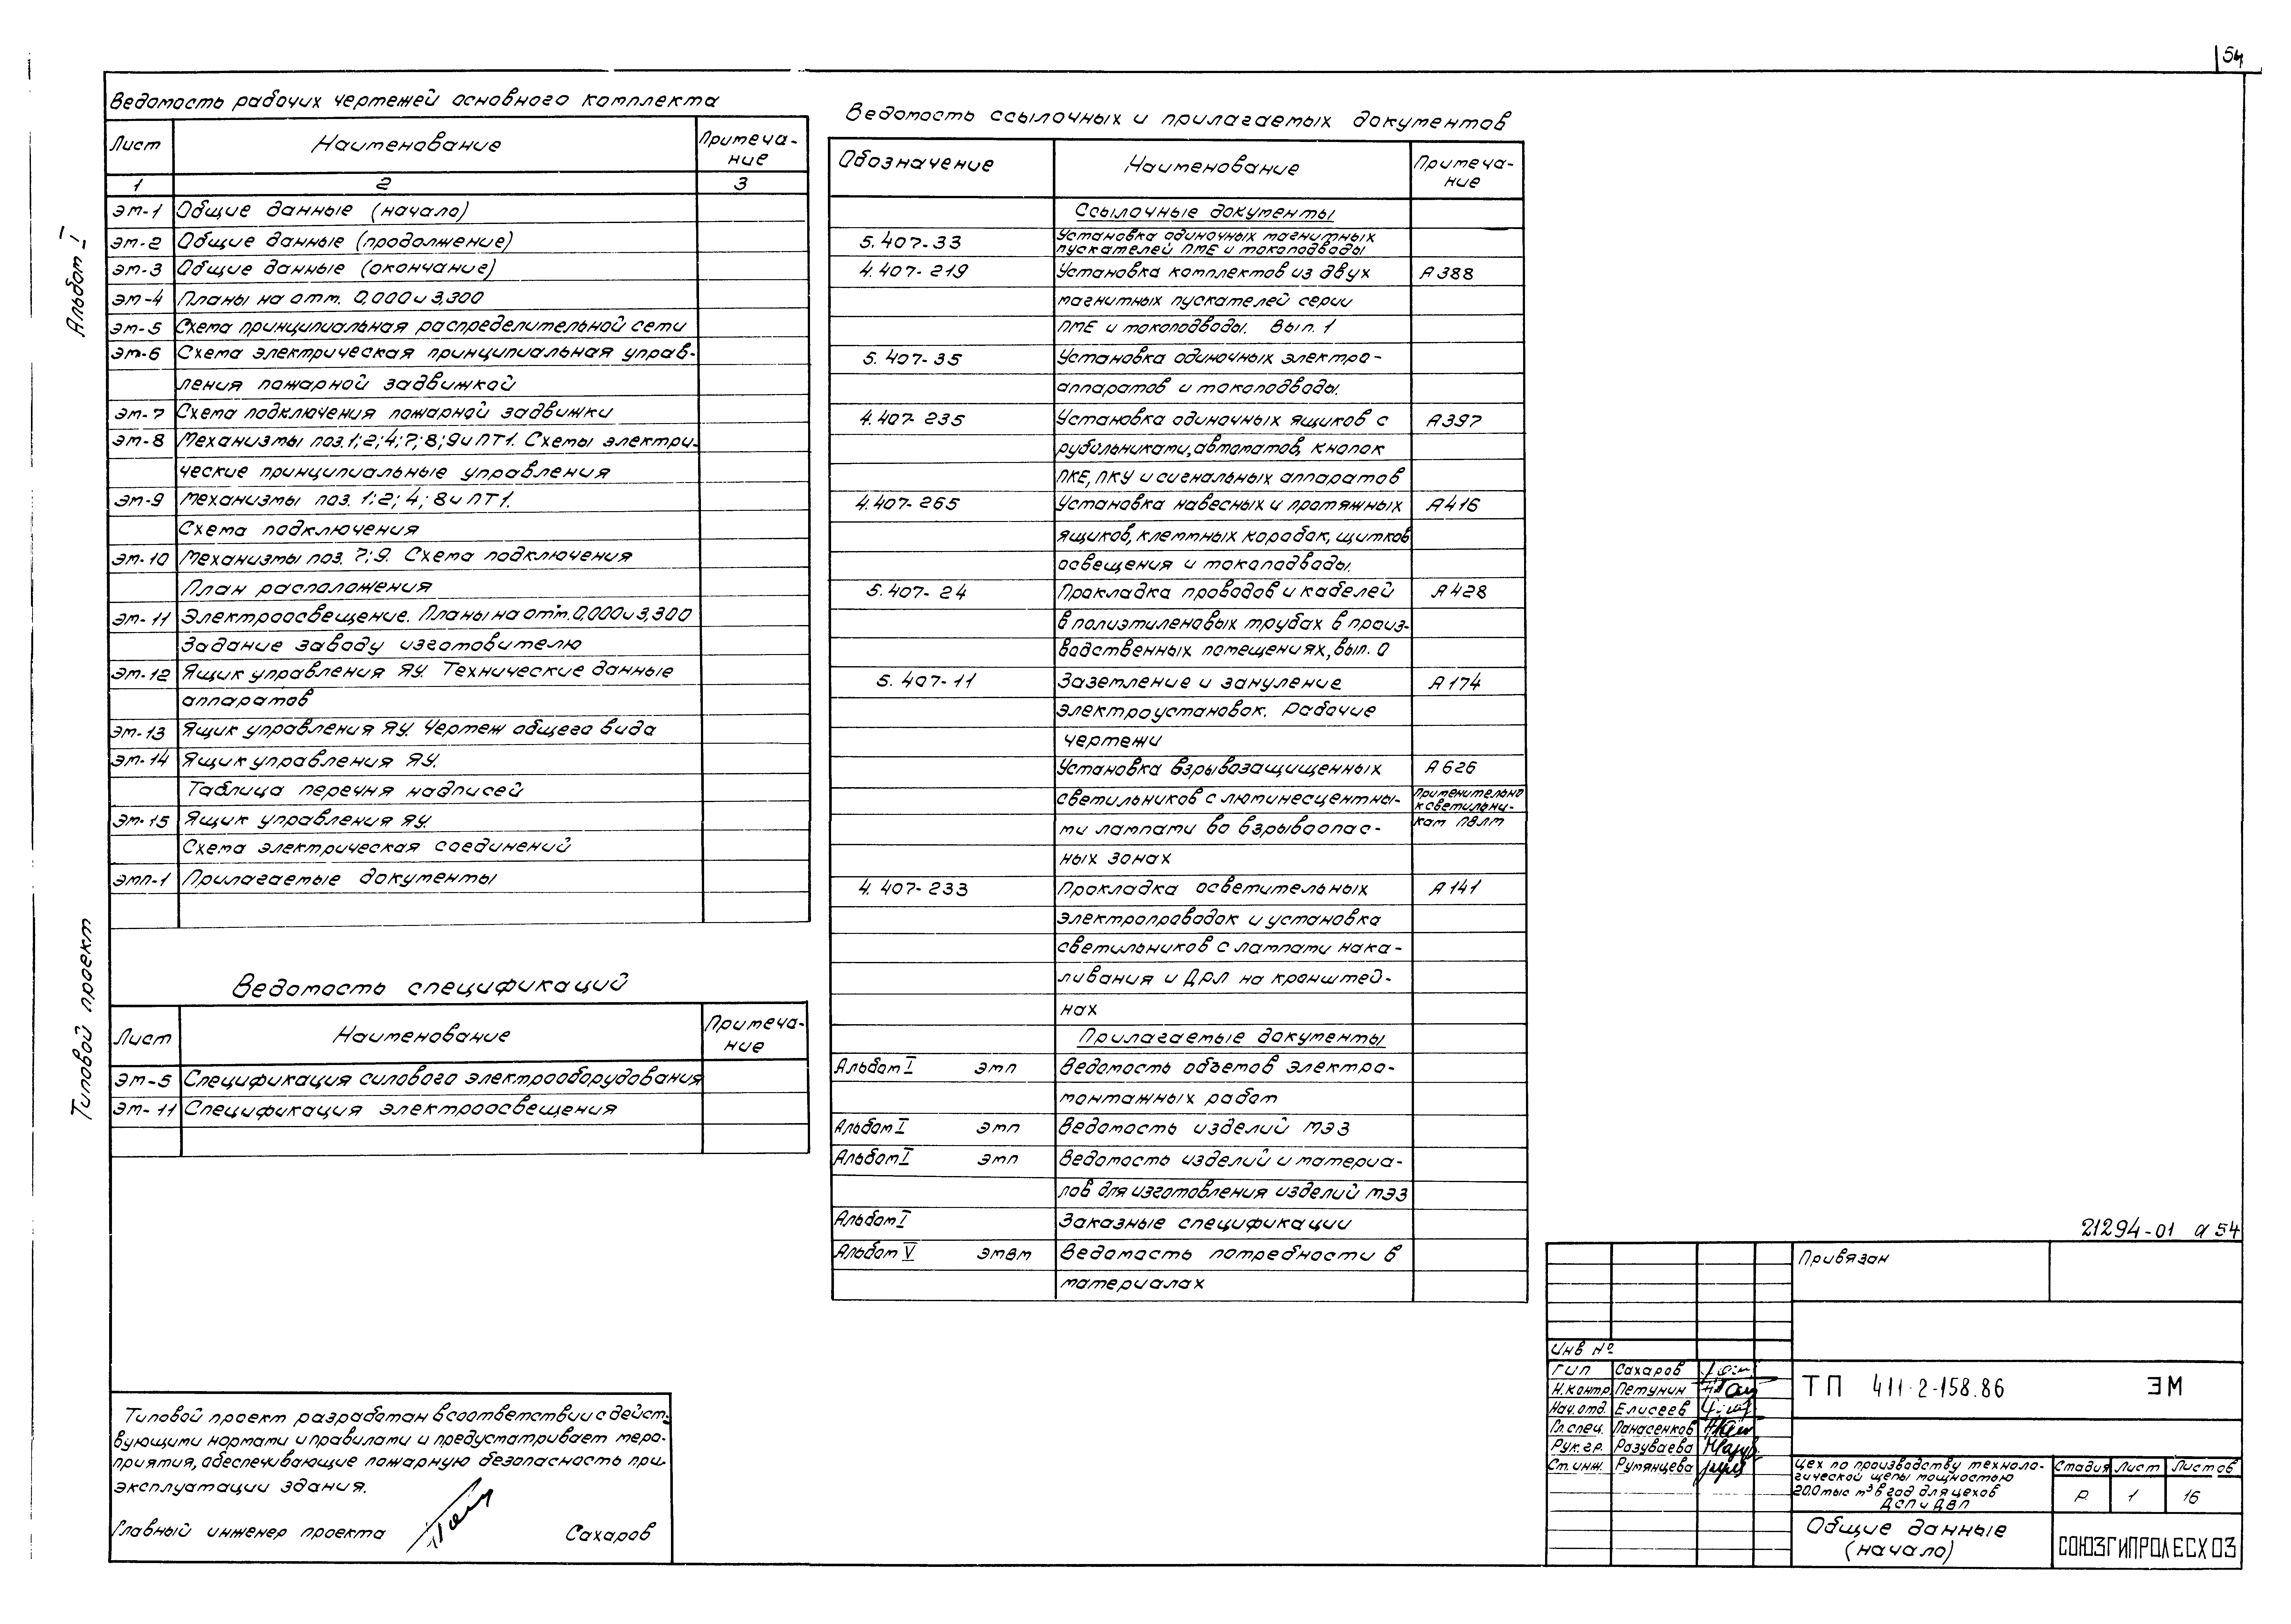 54
Альбом I
Типовой проект
Ведомость рабочих чертежей основного комплекта
Лист Наименование Примеча-
ние
1 2 3
ЭМ-1 Общие данные (начало)
ЭМ-2 Общие данные (продолжение)
ЭМ-3 Общие данные (окончание)
ЭМ-4 Планы на отм. 0,000 и 3,300
ЭМ-5 Схема принципиальная распределительной сети
ЭМ-6 Схема электрическая принципиальная управ-
ления пожарной задвижкой
ЭМ-7 Схема подключения пожарной задвижки
ЭМ-8 Механизмы поз.1;2;4;7;8;9 и ПТ1. Схемы электри-
ческие принципиальные управления
ЭМ-9 Механизмы поз. 1;2; 4; 8 и ПТ1.
Схема подключения
ЭМ-10 Механизмы поз. 7;9. Схема подключения
План расположения
ЭМ-11 Электроосвещение. Планы на отм. 0,000 и 3,300
Задание заводу изготовителю
ЭМ-12 Ящик управления ЯУ. Технические данные
аппаратов
ЭМ-13 Ящик управления ЯУ. Чертеж общего вида
ЭМ-14 Ящик управления ЯУ.
Таблица перечня надписей
ЭМ-15 Ящик управления ЯУ.
Схема электрическая соединений
ЭМП-1 Прилагаемые документы
Ведомость спецификаций
Лист Наименование Примеча-
ние
ЭМ-5 Спецификация силового электрооборудования
ЭМ-11 Спецификация электроосвещения
Типовой проект разработан в соответствии с дейст-
вующими нормами и правилами и предусматривает меро-
приятия, обеспечивающие пожарную безопасность при
эксплуатации здания.
Главный инженер проекта Сахаров
Ведомость ссылочных и прилагаемых документов
Обозначение Наименование Примеча-
ние
Ссылочные документы
5.407-33 Установка одиночных магнитных
пускателей ПМЕ и токоподводы
4.407-219 Установка комплектов из двух А388
магнитных пускателей серии
ПМЕ и токоподводы. Вып. 1
5.407-35 Установка одиночных электро-
аппаратов и токоподводы.
4.407-235 Установка одиночных ящиков с А397
рубильниками, автоматов, кнопок
ПКЕ, ПКУ и сигнальных аппаратов
4.407-265 Установка навесных и протяжных А416
ящиков, клеммных коробок, щитков
освещения и токоподводы.
5.407-24 Прокладка проводов и кабелей А428
в полиэтиленовых трубах в произ-
водственных помещениях, вып. 0
5.407-11 Заземление и зануление А174
электроустановок. Рабочие
чертежи
Установка взрывозащищенных А626
светильников с люминесцентны- Применительно
к светильни-
ми лампами во взрывоопас- кам ПВЛМ
ных зонах
4.407-233 Прокладка осветительных А141
электропроводок и установка
светильников с лампами нака-
ливания и ДРЛ на кронштей-
нах
Прилагаемые документы
Альбом I ЭМП Ведомость объемов электро-
монтажных работ
Альбом I ЭМП Ведомость изделий МЭЗ
Альбом I ЭМП Ведомость изделий и материа-
лов для изготовления изделий МЭЗ
Альбом I Заказные спецификации
Альбом V ЭМВМ Ведомость потребности в
материалах
21294-01 54
Привязан
Инв №
ГИП Сахаров
Н.контр. Петунин
Нач.отд. Елисеев
Гл.спец. Панасенков
Рук.гр. Разуваева
Ст.инж. Румянцева
ТП 411-2-158.86 ЭМ
Цех по производству техноло-
гической щепы мощностью
200 тыс м³ в год для цехов
ДСП и ДВП
Стадия Лист Листов
Р 1 16
Общие данные
(начало)
СОЮЗГИПРОЛЕСХОЗ